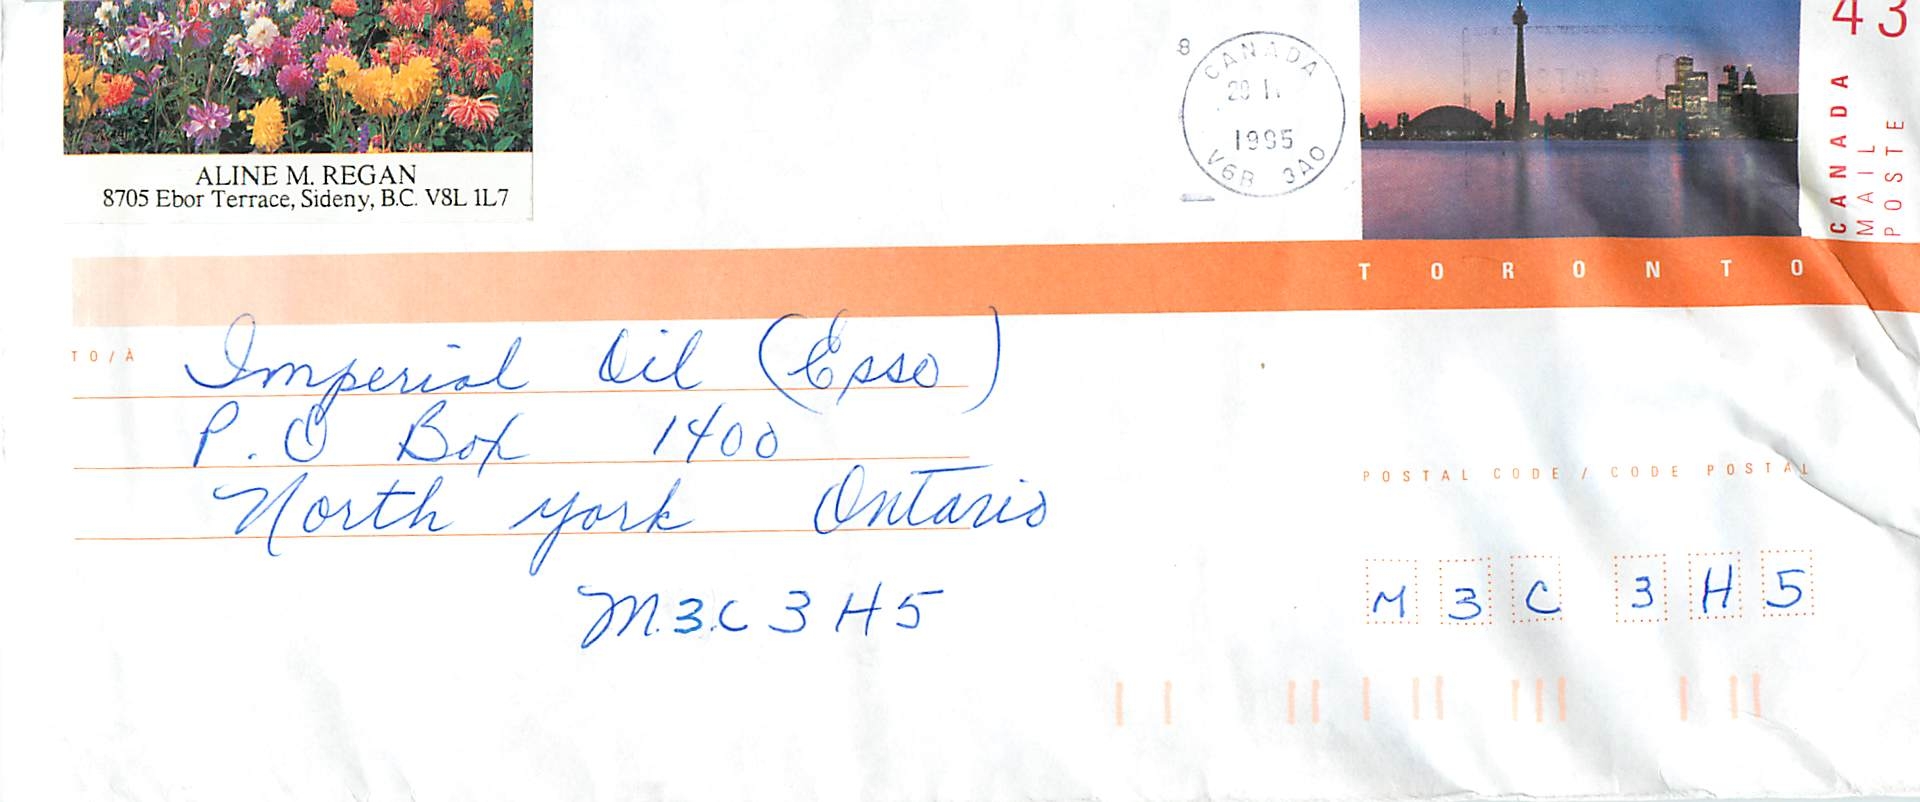 ALINE M. REGAN
8705 Ebor Terrace, Sideny, B.C. V8L 1L7
8
CANADA
1995
V6B 3A0
POSTAL
43
CANADA
MAIL
POSTE
TORONTO
TO/À
Imperial Oil (Esso)
P.O Box 1400
North York Ontario
M3C 3H5
POSTAL CODE / CODE POSTAL
M 3 C 3 H 5